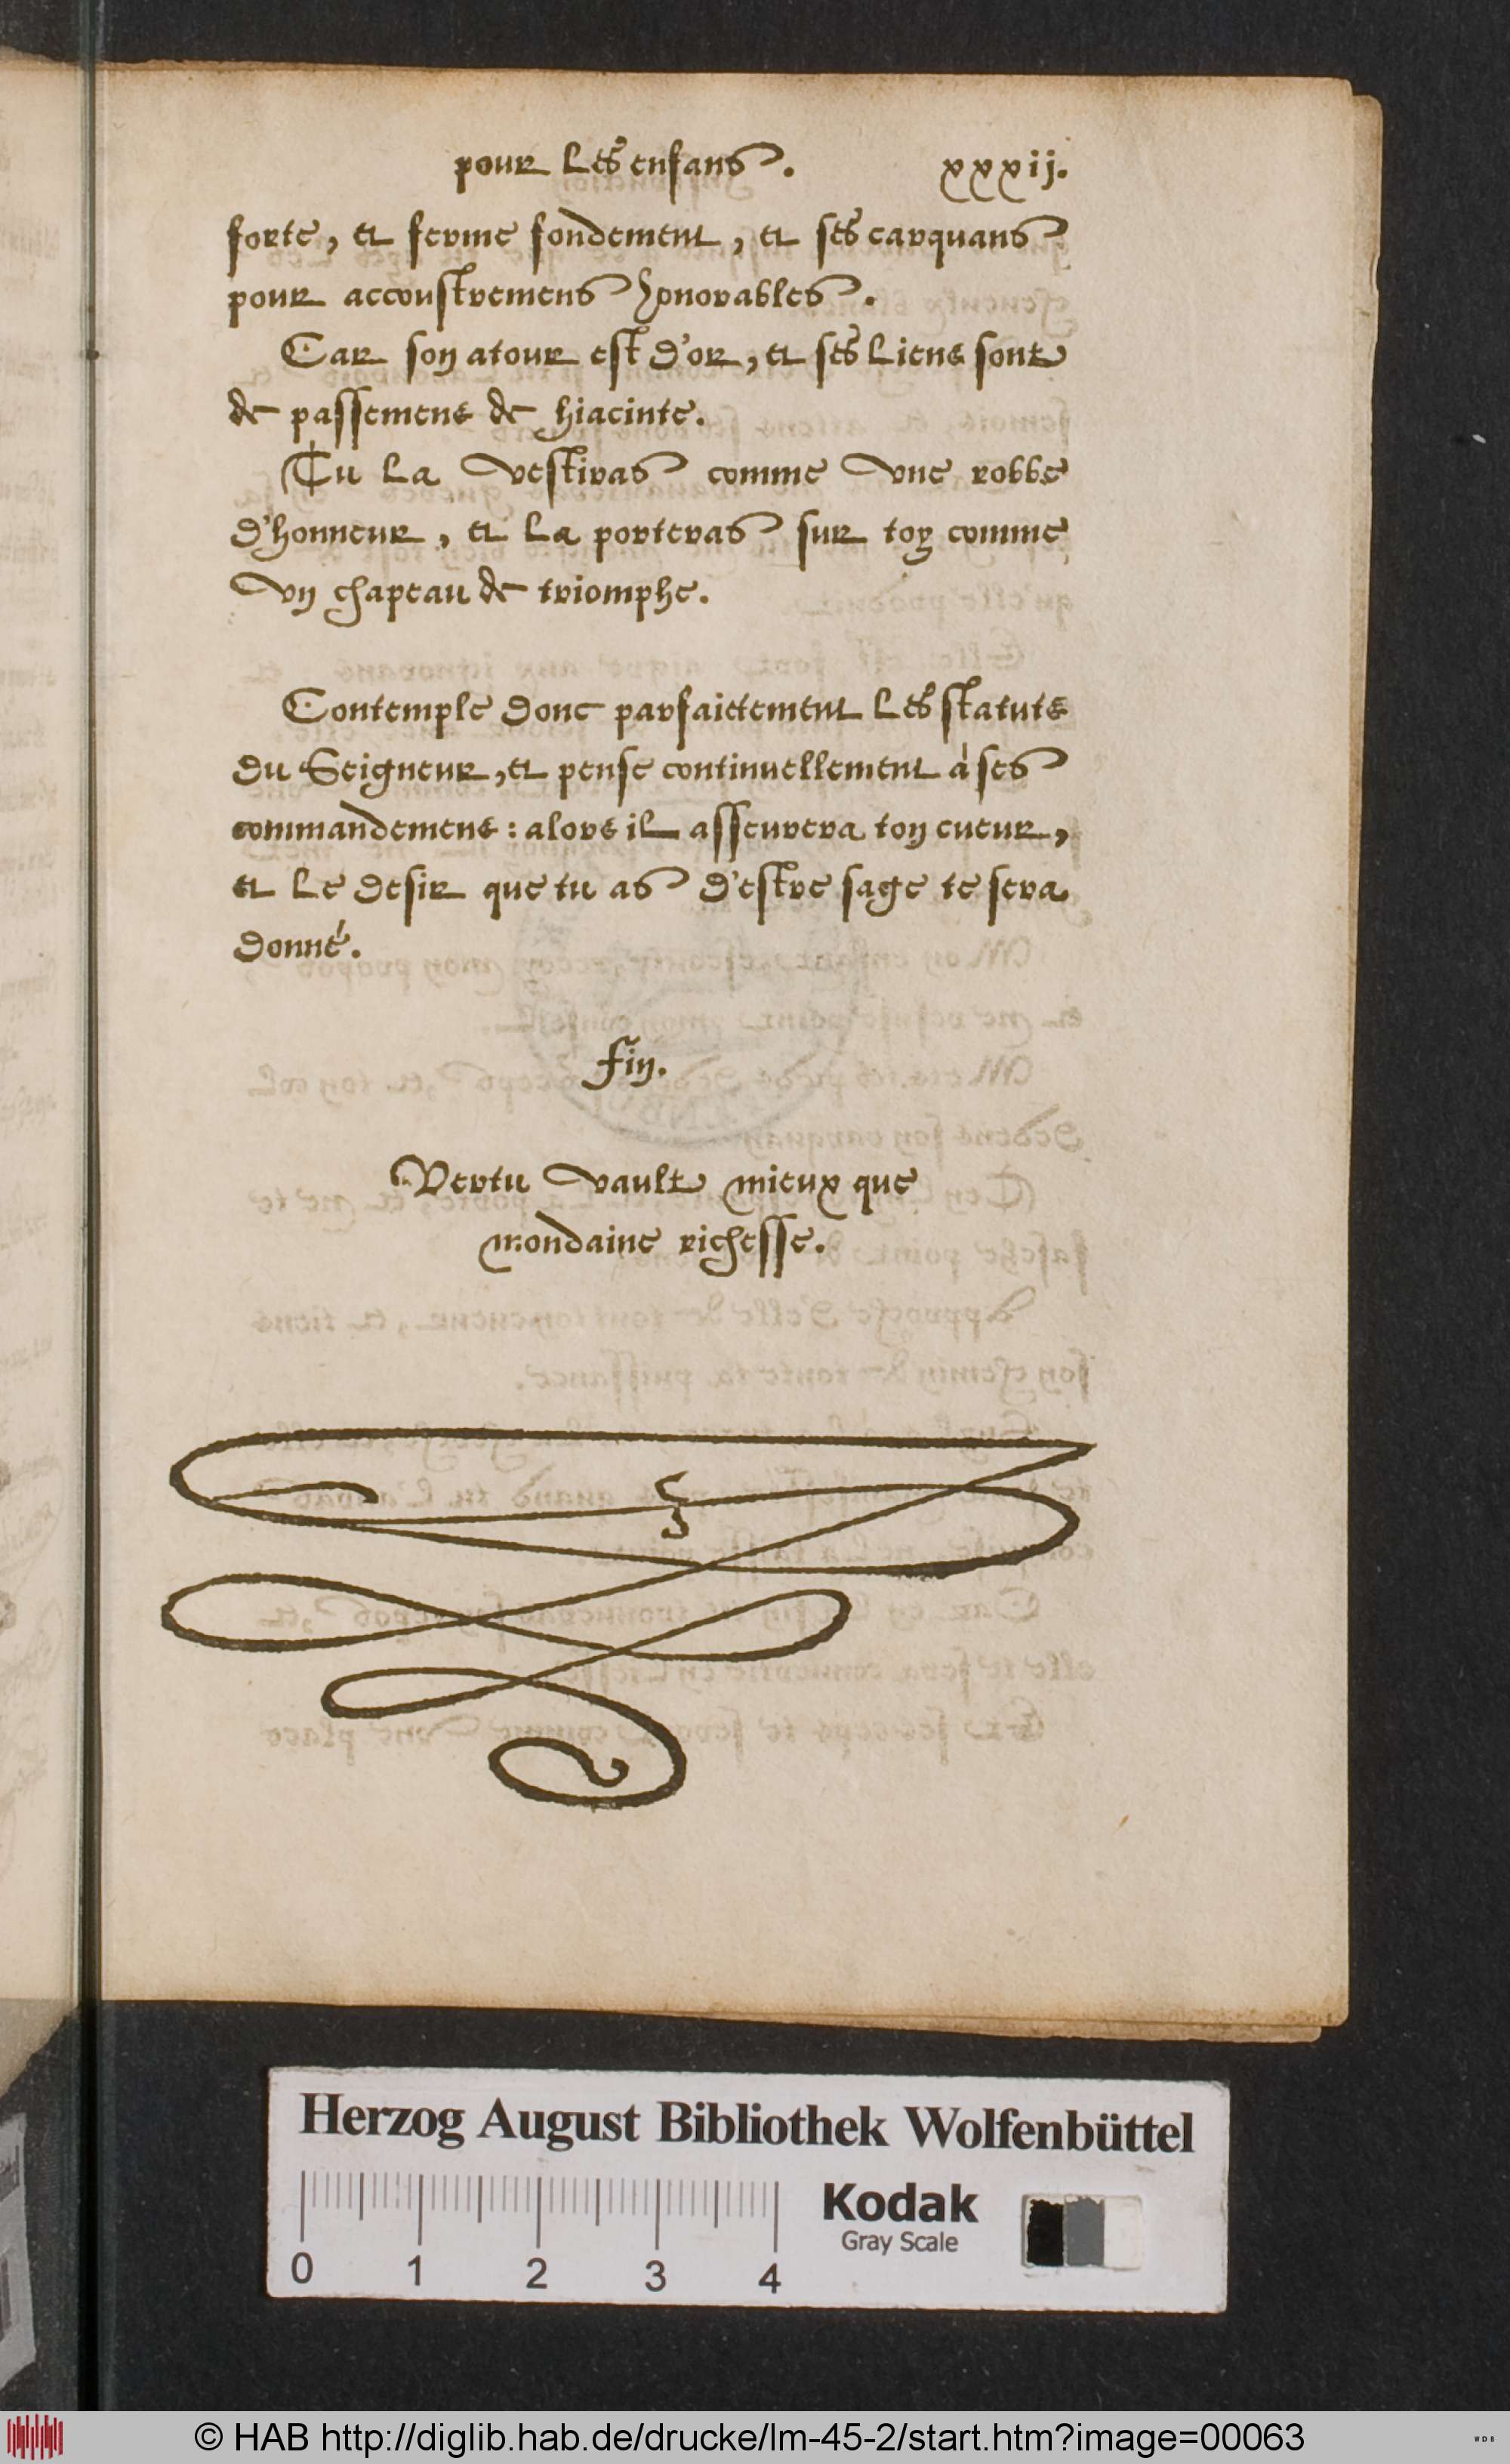 pour les enfans. xxxij.
forte, et ferme fondement, et ses carquans
pour accoustremens honorables.
Car son atour est d'or, et ses liens sont
de passemens de hiacinte.
Tu la vestiras comme vne robbe
d'honneur, et la porteras sur toy comme
vn chapeau de triomphe.
Contemple donc parfaictement les statuts
du Seigneur, et pense continuellement à ses
commandemens: alors il asseurera ton cueur,
et le desir que tu as d'estre sage te sera
donné.
Fin.
Vertu vault mieux que
mondaine richesse.
Herzog August Bibliothek Wolfenbüttel
0 1 2 3 4
Kodak
Gray Scale
© HAB http://diglib.hab.de/drucke/lm-45-2/start.htm?image=00063